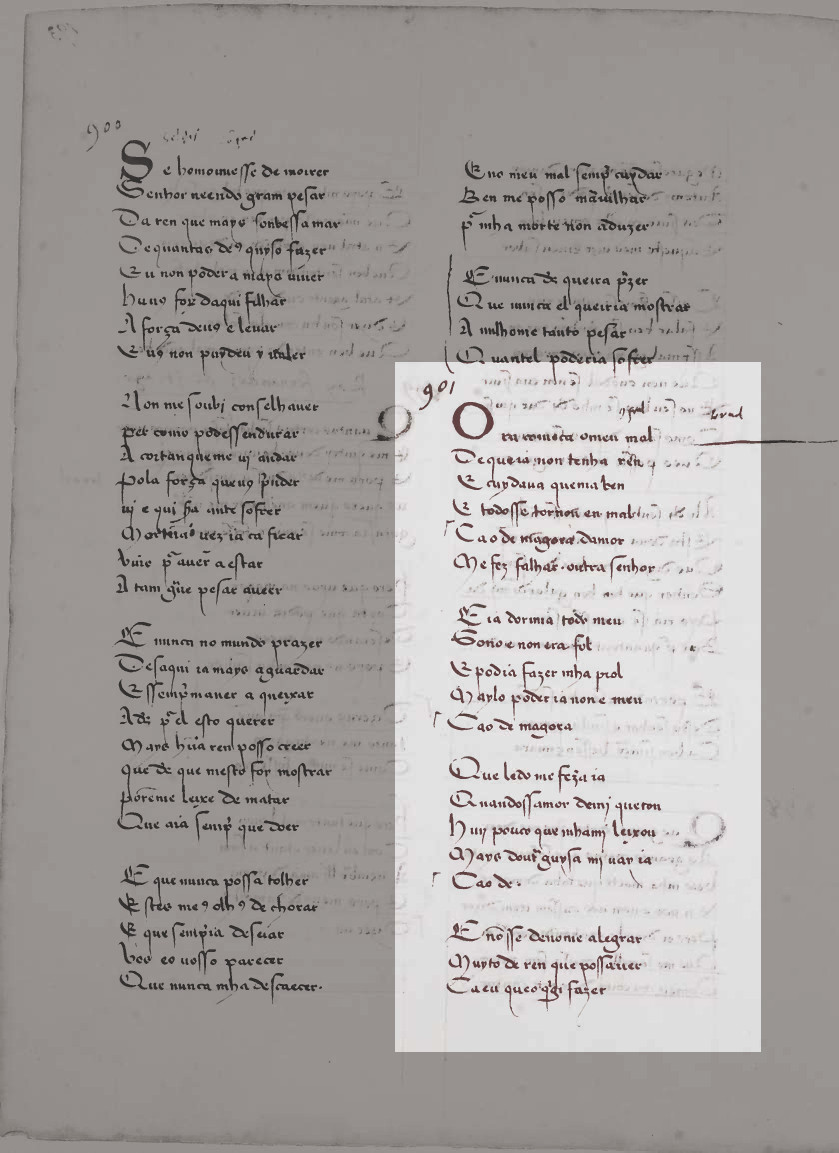 900
Se homouuesse de moirer
Senhor ueendo gram pesar
Da ren que mays soubessa mar
De quantas de9 quyso fazer
Eu non podera mays uiuer
huus for daqui filhar
A força deus e leuar
E uos non pudeu y ualer
Non me soubi conselhauer
per como podessendurar
A coitanqueme ui andar
Pola força queu9 prender
ui e qui ante sofrer
Mort hūa uez ia ca ficar
uiuo pa auer a estar
A tam gue pesar aueer
E nunca no mundo prazer
Des aqui ia mays aguardar
E ssemp mauer a queixar
A ds pr el esto querer
Mays hūa ren posso creer
que de que mesto for mostrar
poreme leixe de matar
Que aia semp que doer
E que nunca possa tolher
Estes me9 olh9 de chorar
E que sempia deseiar
uos eo uosso parecer
Que nunca mha descaecer.
E no meu mal semp cuydar
Ben me posso marauilhar
pr mha morte non aduzer
E nunca ds queira przer
Que nunca el queiria mostrar
A nulhome tanto pesar
Quantel poderia sofrer
901
Ora comença o meu mal
De que ia non tenha ren
E cuydaua que mia ben
E todosse tornou en mal
Ca o de magora damor
Me fez falhar outra senhor
E ia dormia todo meu
Sono e non era fol
E podia fazer mha prol
Maylo poder ia non e meu
Ca o de magora
Que ledo me feza ia
Quandossamor demi quitou
Huū pouco que mhami leixou
Mays doutra guysa mi uay ia
Ca o de.
E nosse denome alegrar
Muyto de ren que possauer
Ca eu fazer